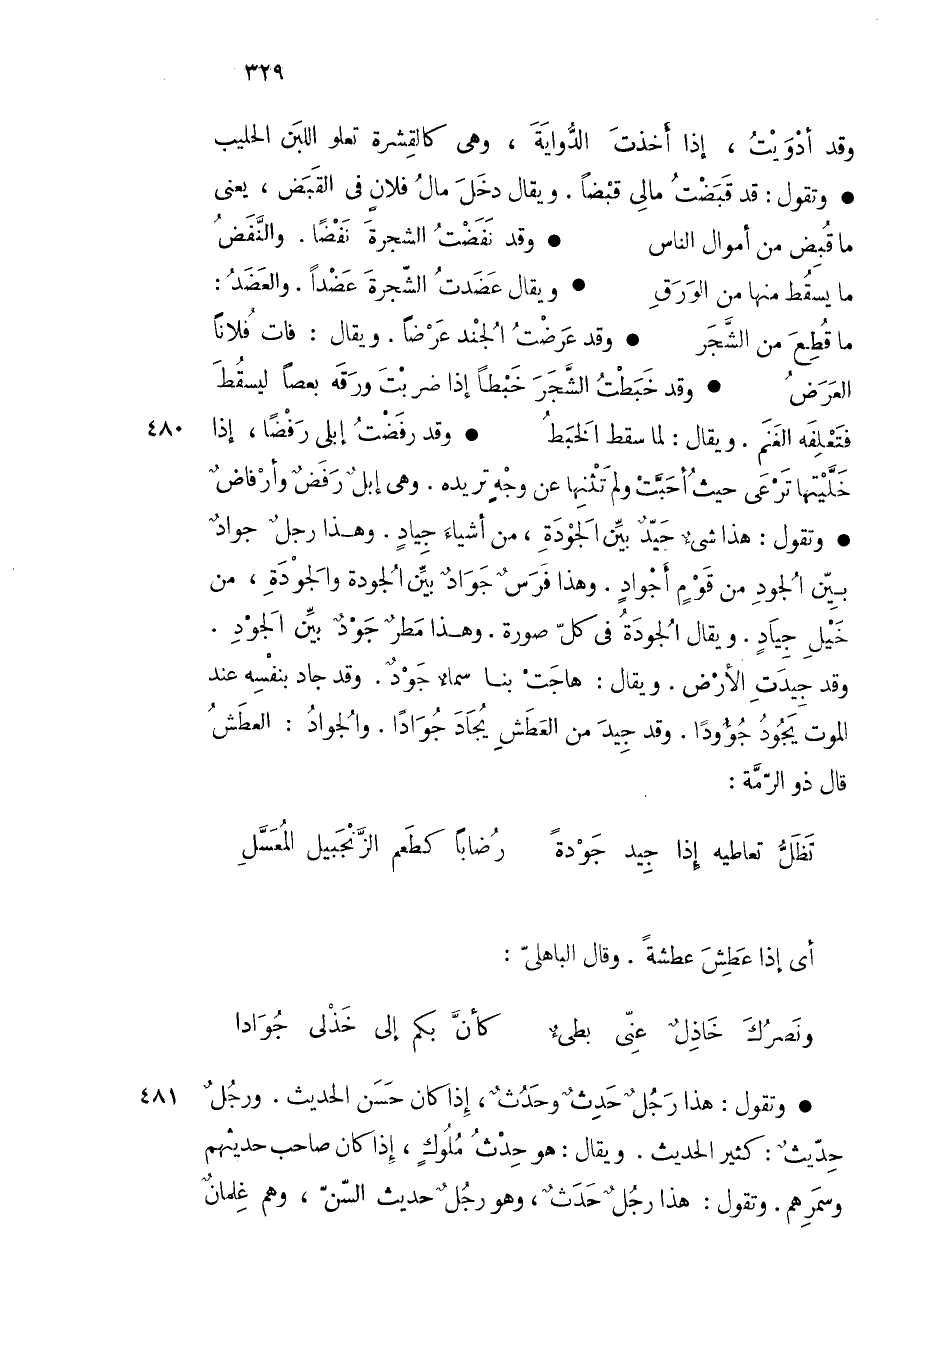 ٣٢٩
وقد أدْوَيْتُ ، إذا أَخذتَ الدُّوايَةَ ، وهى كالقِشرة تعلو اللبَن الحليب
● وتقول : قد قَبَضْتُ مالى قبْضاً . ويقال دخَلَ مالُ فلانٍ فى القَبَض ، يعنى
ما قُبِض من أموال الناس ● وقد نَفَضْتُ الشجرةَ نَفْضًا . والنَّفَضُ
ما يسقُط منها من الوَرَقِ ● ويقال عَضَدتُ الشّجرةَ عَضْداً . والعَضَدُ :
ما قُطِعَ من الشَّجَر ● وقد عَرَضْتُ الُجنْد عَرْضاً . ويقال : فات فُلاناً
العَرَضُ ● وقد خَبَطْتُ الشَّجَرَ خَبْطاً إذا ضربْتَ ورقَه بعصاً ليسقُطَ
فتَعْلِفَه الغَنَم . ويقال : لما سقط الَخبَطُ ● وقد رفَضْتُ إبلى رَفْضًا ، إذا ٤٨٠
خَلَّيْتها تَرْعَى حيثُ أحَبَّتْ ولم تَثْنِها عن وجْهٍ تريده . وهى إبلٌ رَفَضٌ وأرْفاضٌ
● وتقول : هذا شىءٌ جَيّدٌ بيِّن الَجوْدَةِ ، من أشياءَ جِيادٍ . وهــذا رجلٌ جوادٌ
بــيّن الُجودِ من قَوْمٍ أجْوادٍ . وهذا فَرَسٌ جَوَادٌ بيِّن الُجودة والَجوْدَةِ ، من
خَيْلٍ جِيَادٍ . ويقال الُجودَةُ فى كلّ صورة . وهــذا مَطرٌ جَوْدٌ بيِّن الَجوْدِ .
وقد جِيدَتِ الأرْض . ويقال : هاجَتْ بنــا سماء جَوْدٌ . وقد جاد بنفْسِه عند
الموت يَجُودُ جُؤودًا . وقد جِيدَ من العَطَشِ يُجَادَ جُوَادًا . والُجوادُ : العطَشُ
قال ذو الرّمَّة :
تَظَلُّ تعاطيه إذا جِيد جَوْدةً رُضاباً كطَعم الزَّنْجَبيل الُمعَسَّلِ
أى إذا عَطِشَ عطشةً . وقال الباهلىّ :
ونَصرُكَ خَاذِلٌ عنِّى بطىءٌ كأنَّ بكم إلى خَذْلى جُوَادا
● وتقول : هذا رَجُلٌ حَدِثٌ وحَدُثٌ ، إذا كان حَسَن الحديث . ورجُلٌ ٤٨١
حِدّيثٌ : كثير الحديث . ويقال : هو حِدْثُ مُلُوكٍ ، إذا كان صاحب حديثهم
وسمَرِهم . وتقول : هذا رجُلٌ حَدَثٌ ، وهو رجُلٌ حديث السّنّ ، وهم غِلمانٌ